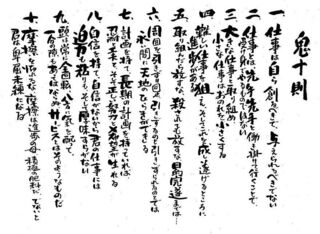 鬼十則
一、仕事は自ら「創る」べきで、与えられるべきでない
二、仕事とは、先手先手と働き掛けて行くことで、
受け身でやるものではない
三、大きな仕事と取り組め
小さな仕事は己れを小さくする
四、難しい仕事を狙え、そして之を成し遂げるところに
進歩がある
五、取り組んだら放すな、殺されても放すな、目的完遂までは…
六、周囲を引きずり回せ、引きずるのと引きずられるのでは
永い間に天地のひらきができる
七、計画を持て、長期の計画を持っていれば、
忍耐と工夫と、そして正しい努力と希望が生れる
八、自信を持て、自信がないから君の仕事には
迫力も粘りも、そして厚味すらがない
九、頭は常に全回転、八方に気を配って、
一分の隙もあってはならぬ、サービスとはそのようなものだ
十、摩擦を怖れるな、摩擦は進歩の母、積極の肥料だ、でないと
君は卑屈未練になる